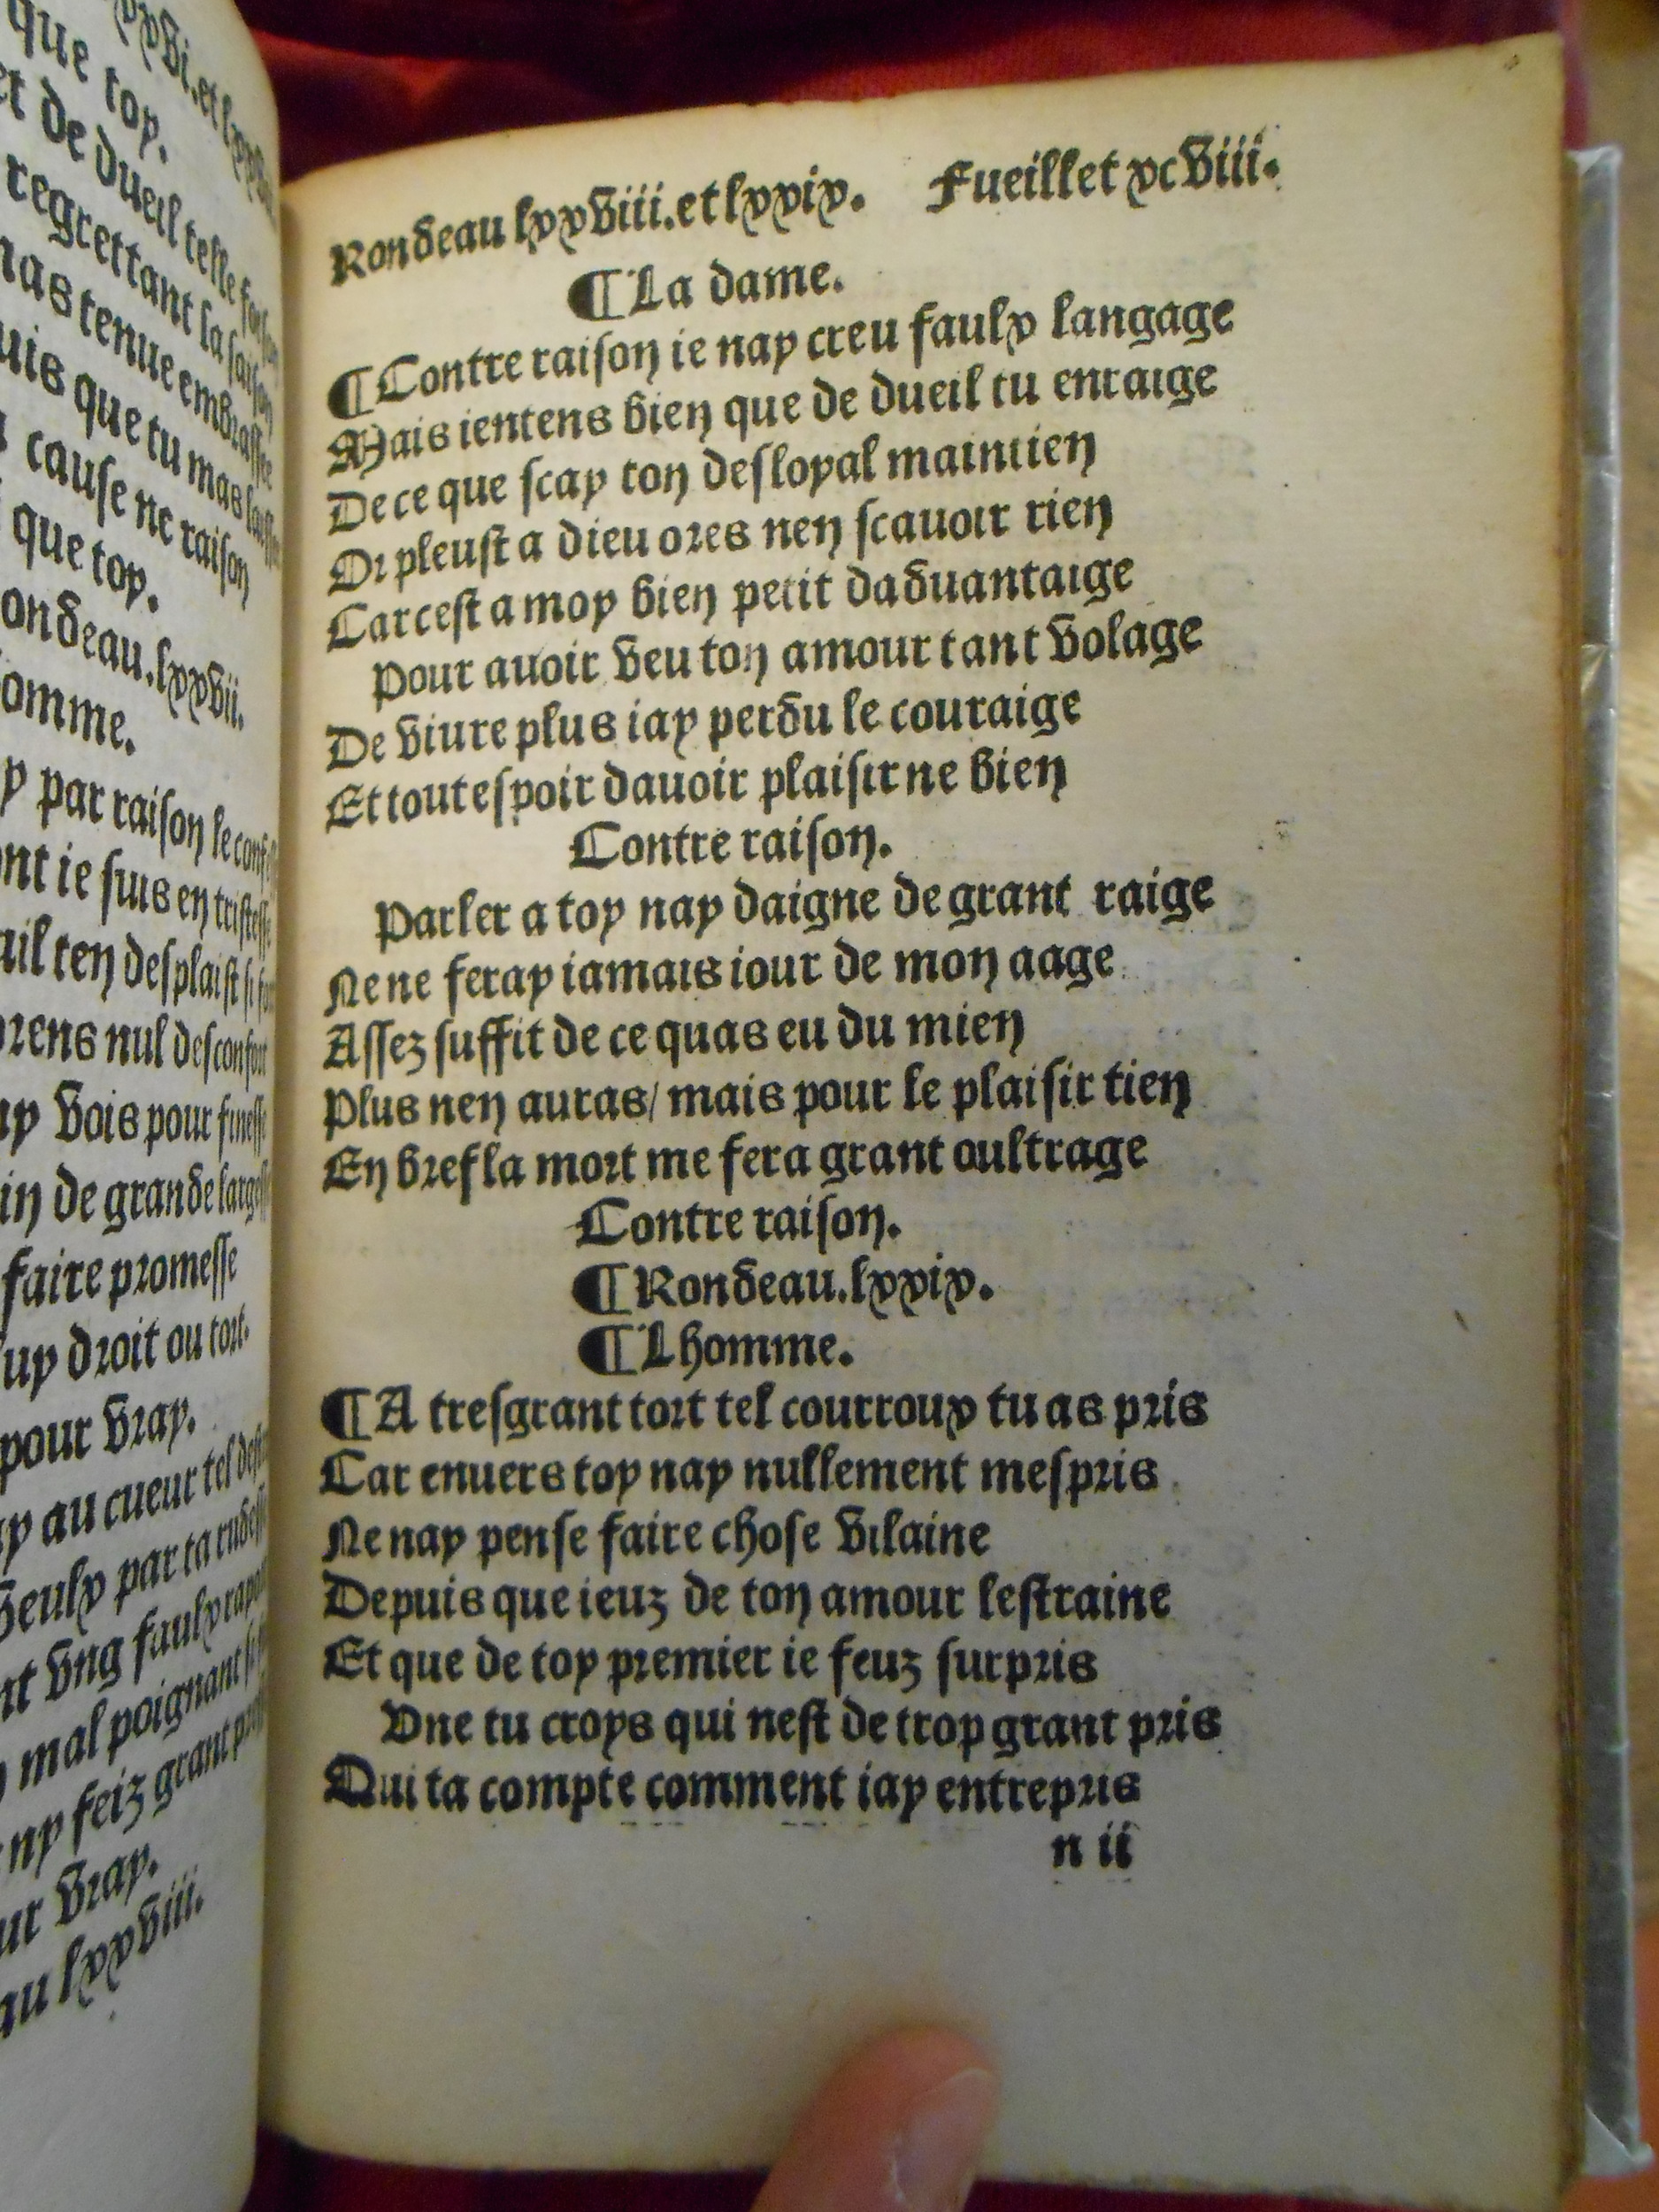 xxvi.et lxxvii
que toy.
et de dueil telle
regrettant la saison
mas tenue embrassee
uis que tu mas
cause ne raison
que toy.
ondeau.lxxvii.
omme.
y par raison le
nt ie suis en tristesse
ail ten desplaist si
prens nul desconfort
ay vois pour finesse
in de grande
faire promesse
uy droit ou tort.
pour vray.
ay au cueur tel
veulx par ta
nt vng faulx
mal poignant
ny feiz grant
ur vray.
au lxxviii.
Rondeau lxxviii.et lxxix. Fueillet xcviii.
¶La dame.
¶Contre raison ie nay creu faulx langage
Mais ientens bien que de dueil tu enraige
De ce que scay ton desloyal maintien
Or pleust a dieu ores nen scauoir rien
Car cest a moy bien petit daduantaige
Pour auoir veu ton amour tant volage
De viure plus iay perdu le couraige
Et tout espoir dauoir plaisir ne bien
Contre raison.
Parler a toy nay daigne de grant raige
Ne ne feray iamais iour de mon aage
Assez suffit de ce quas eu du mien
Plus nen auras/ mais pour le plaisir tien
En bref la mort me fera grant oultrage
Contre raison.
¶Rondeau.lxxix.
¶Lhomme.
¶A tresgrant tort tel courroux tu as pris
Car enuers toy nay nullement mespris
Ne nay pense faire chose vilaine
Depuis que ieuz de ton amour lestraine
Et que de toy premier ie feuz surpris
Vne tu croys qui nest de trop grant pris
Qui ta compte comment iay entrepris
n ii